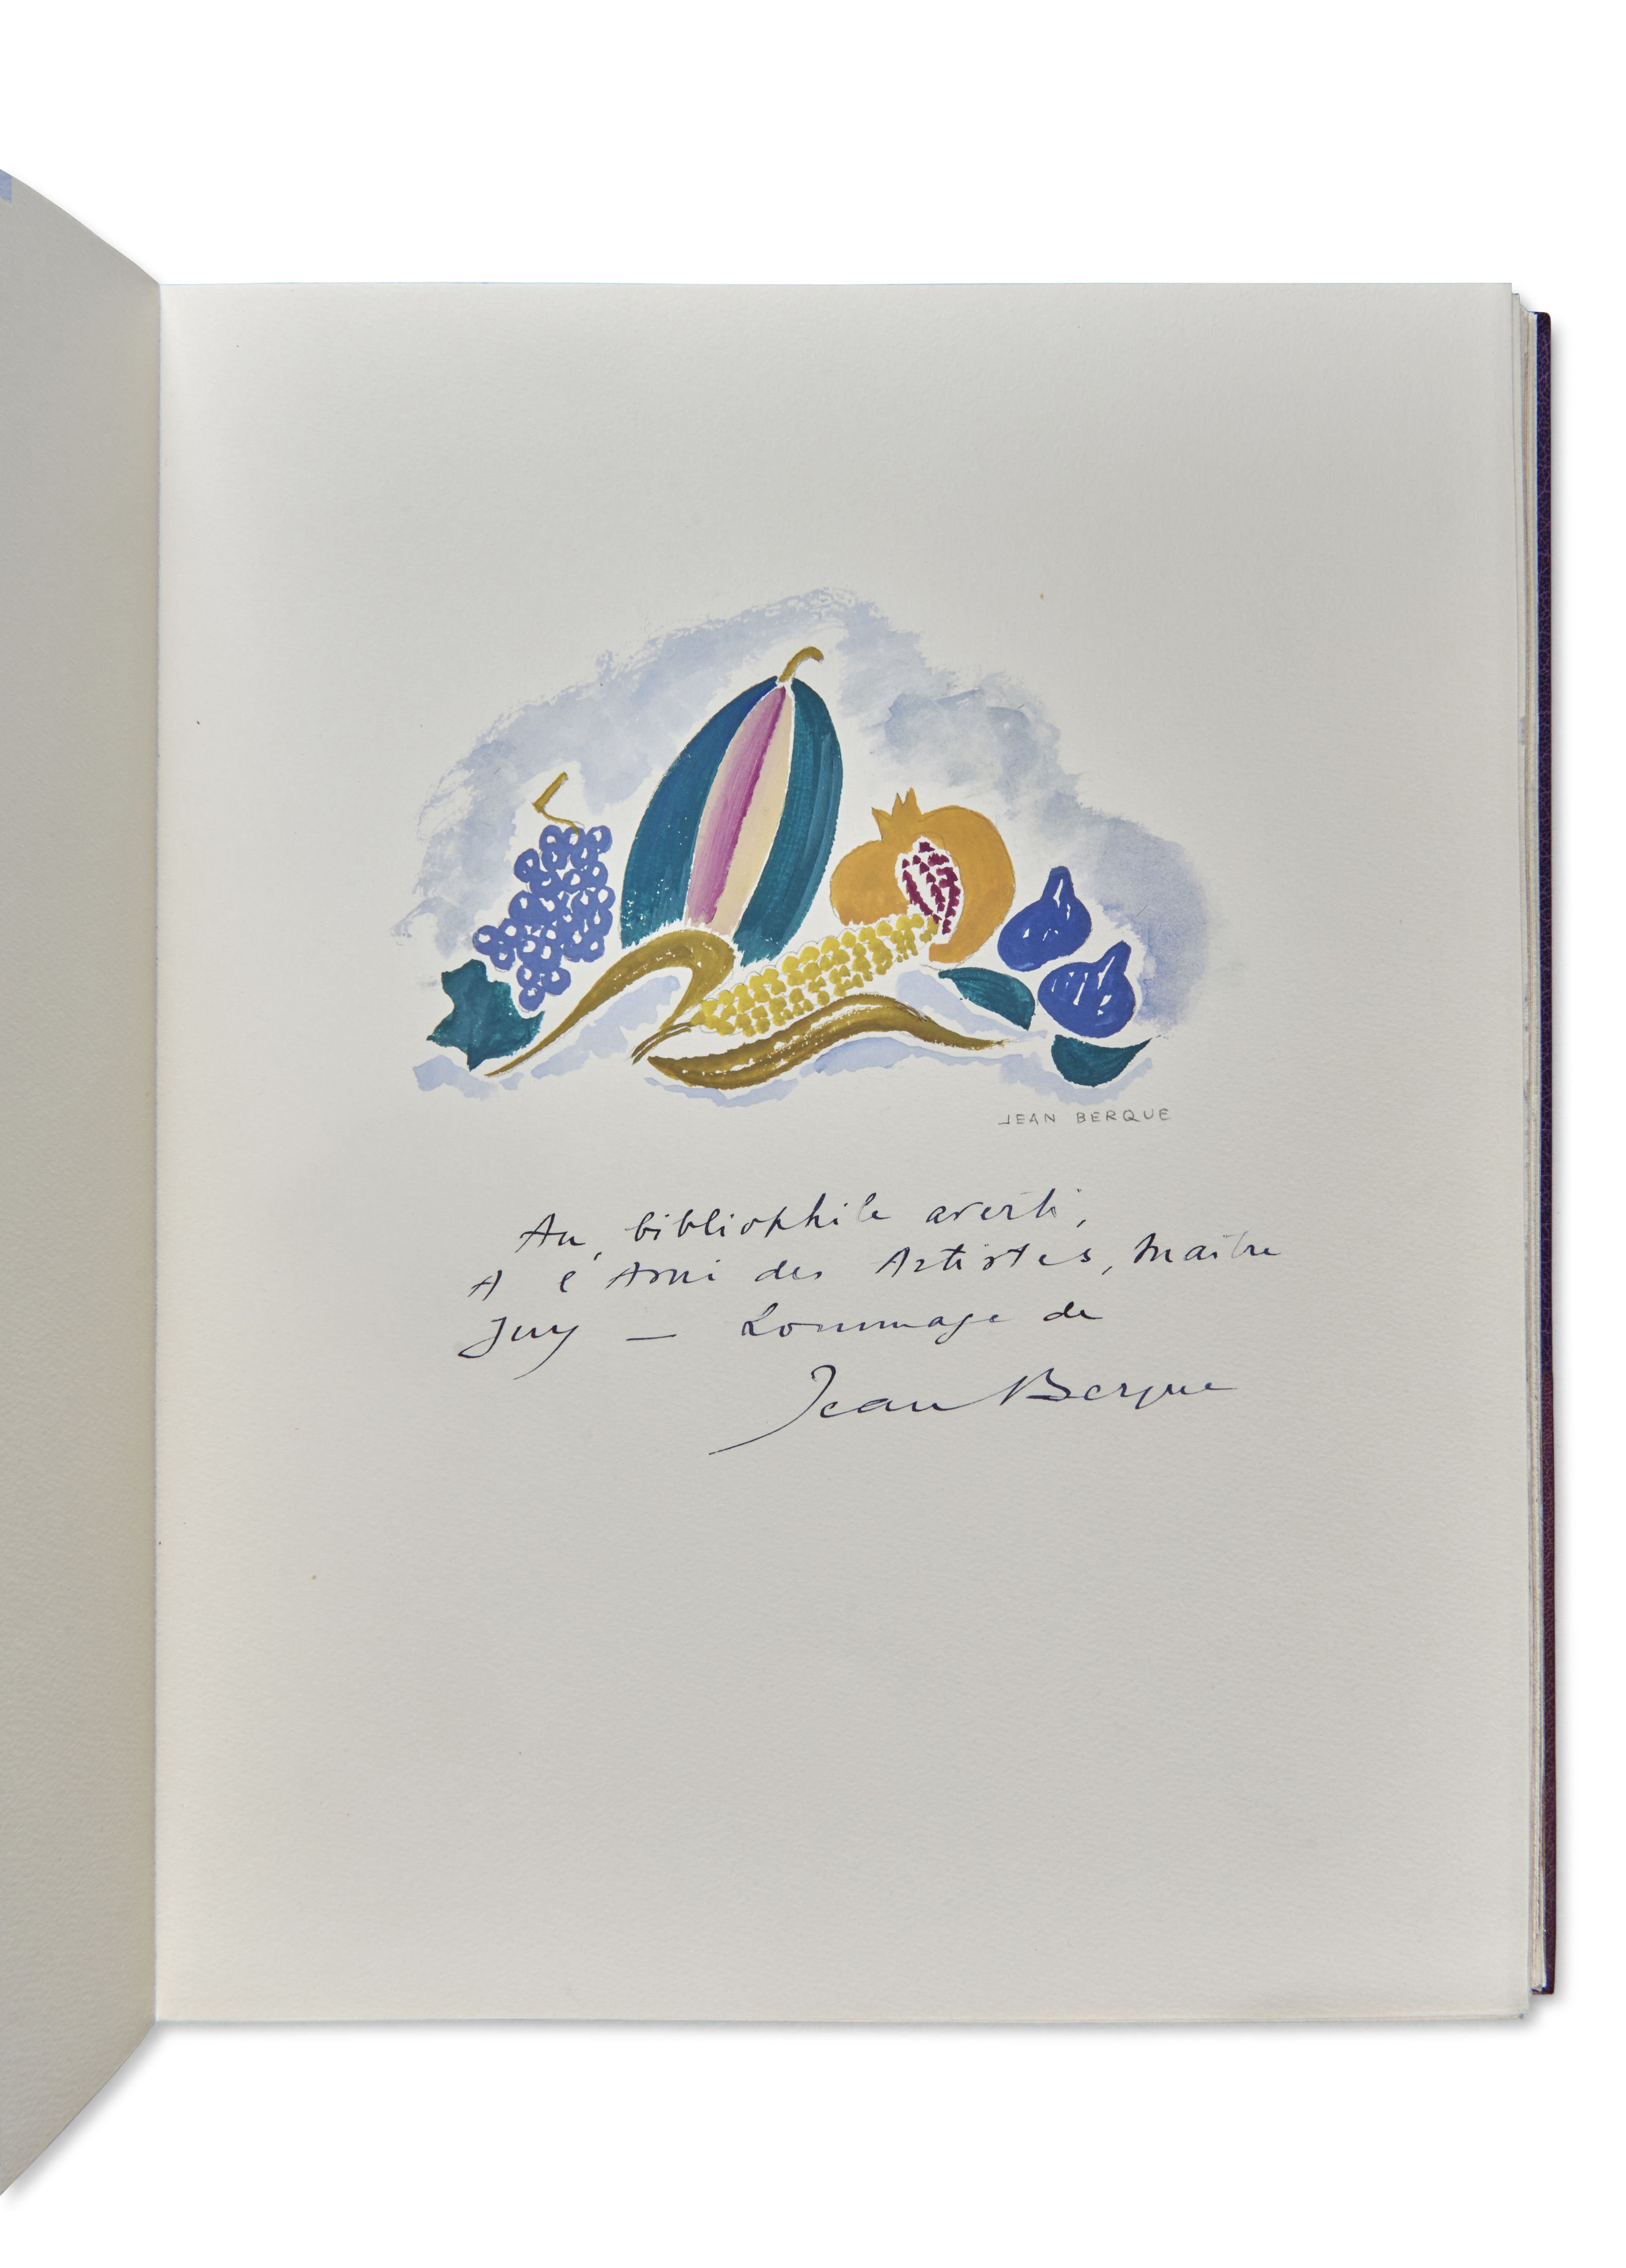 JEAN BERQUE
Au bibliophile averti,
A l'Ami des Artistes, Maître
— Hommage de
Jean Berque